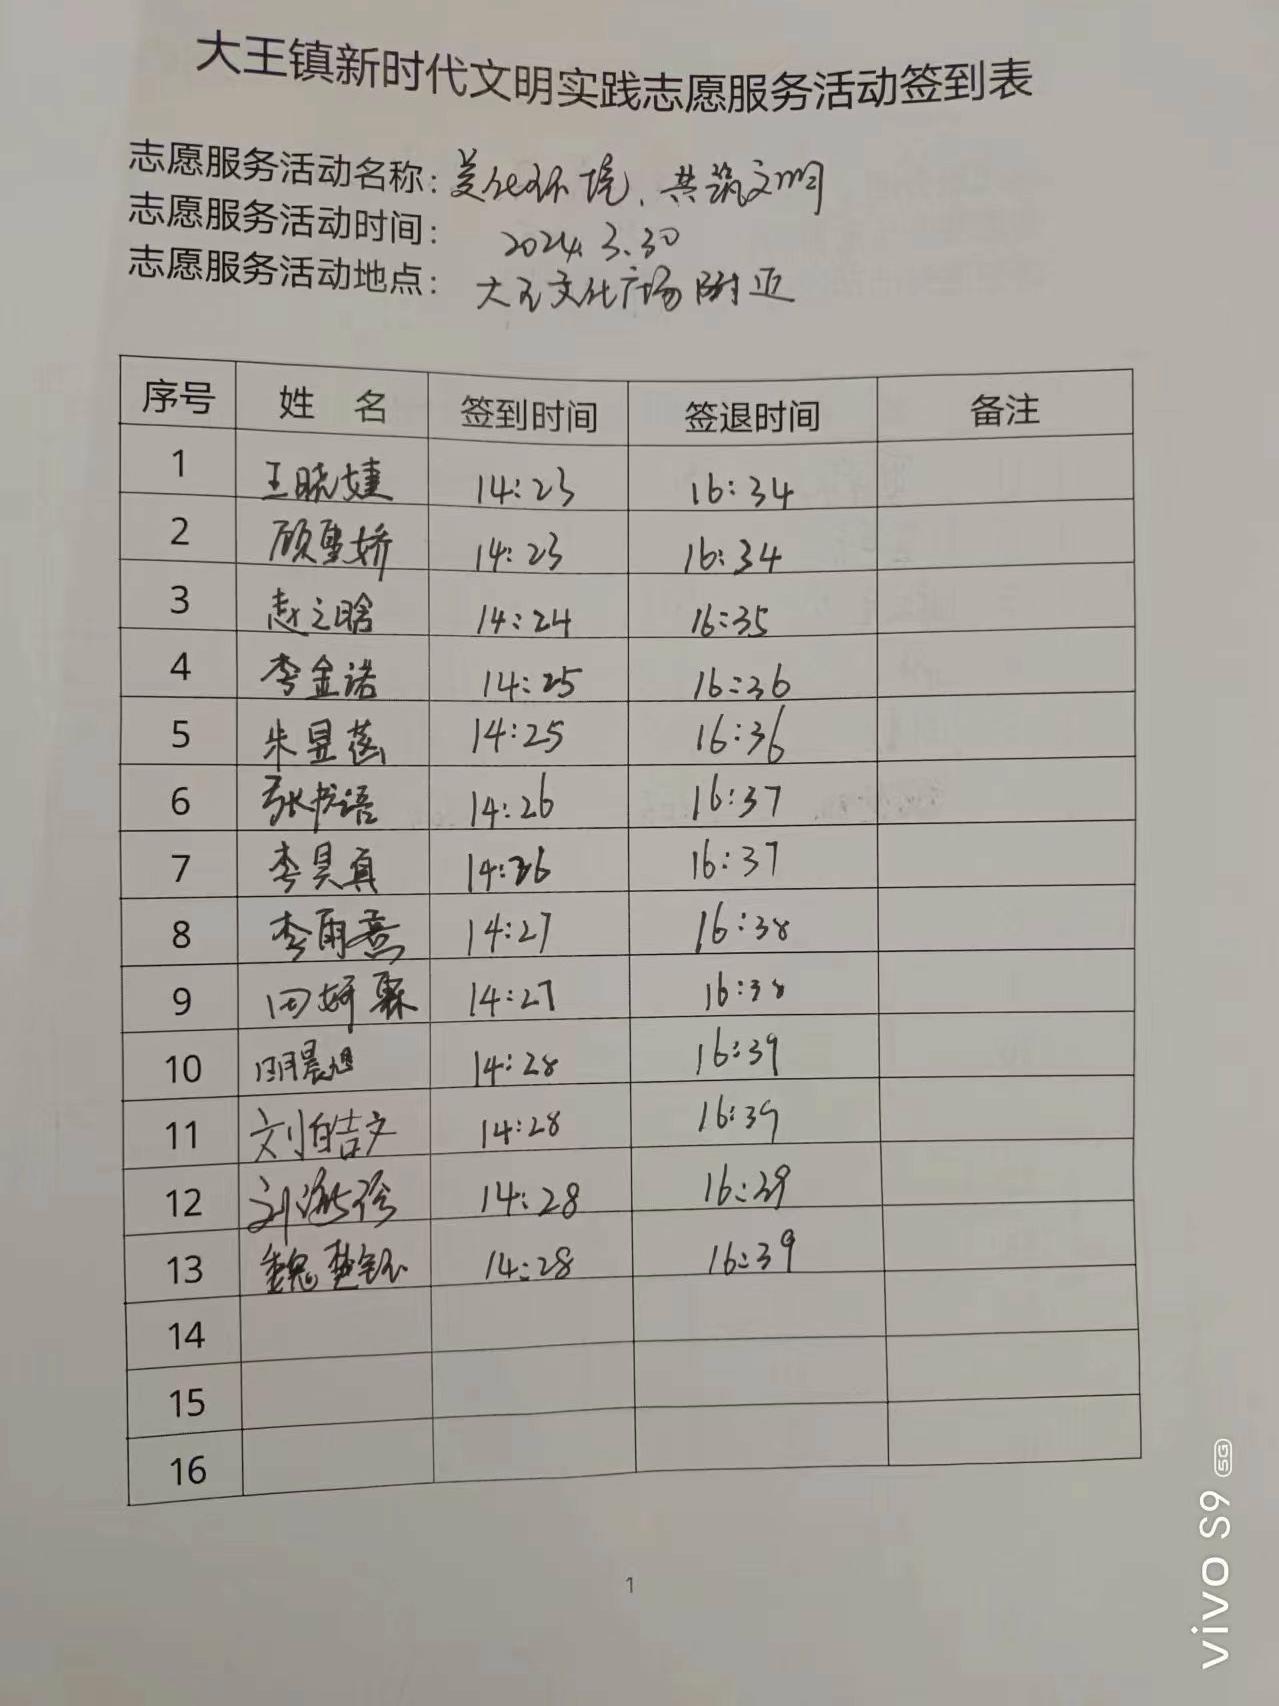 大王镇新时代文明实践志愿服务活动签到表
志愿服务活动名称：美化环境、共筑文明
志愿服务活动时间： 2024.3.30
志愿服务活动地点： 大王文化广场附近
序号 姓 名 签到时间 签退时间 备注
1 王晓婕 14:23 16:34
2 顾雪娇 14:23 16:34
3 赵之晗 14:24 16:35
4 李金诺 14:25 16:36
5 朱昱菡 14:25 16:36
6 张书语 14:26 16:37
7 李昊真 14:26 16:37
8 李雨熹 14:27 16:38
9 田妍霖 14:27 16:38
10 明晨旭 14:28 16:39
11 刘皓文 14:28 16:39
12 刘 14:28 16:39
13 魏楚钰 14:28 16:39
14
15
16
1
vivo S9 5G